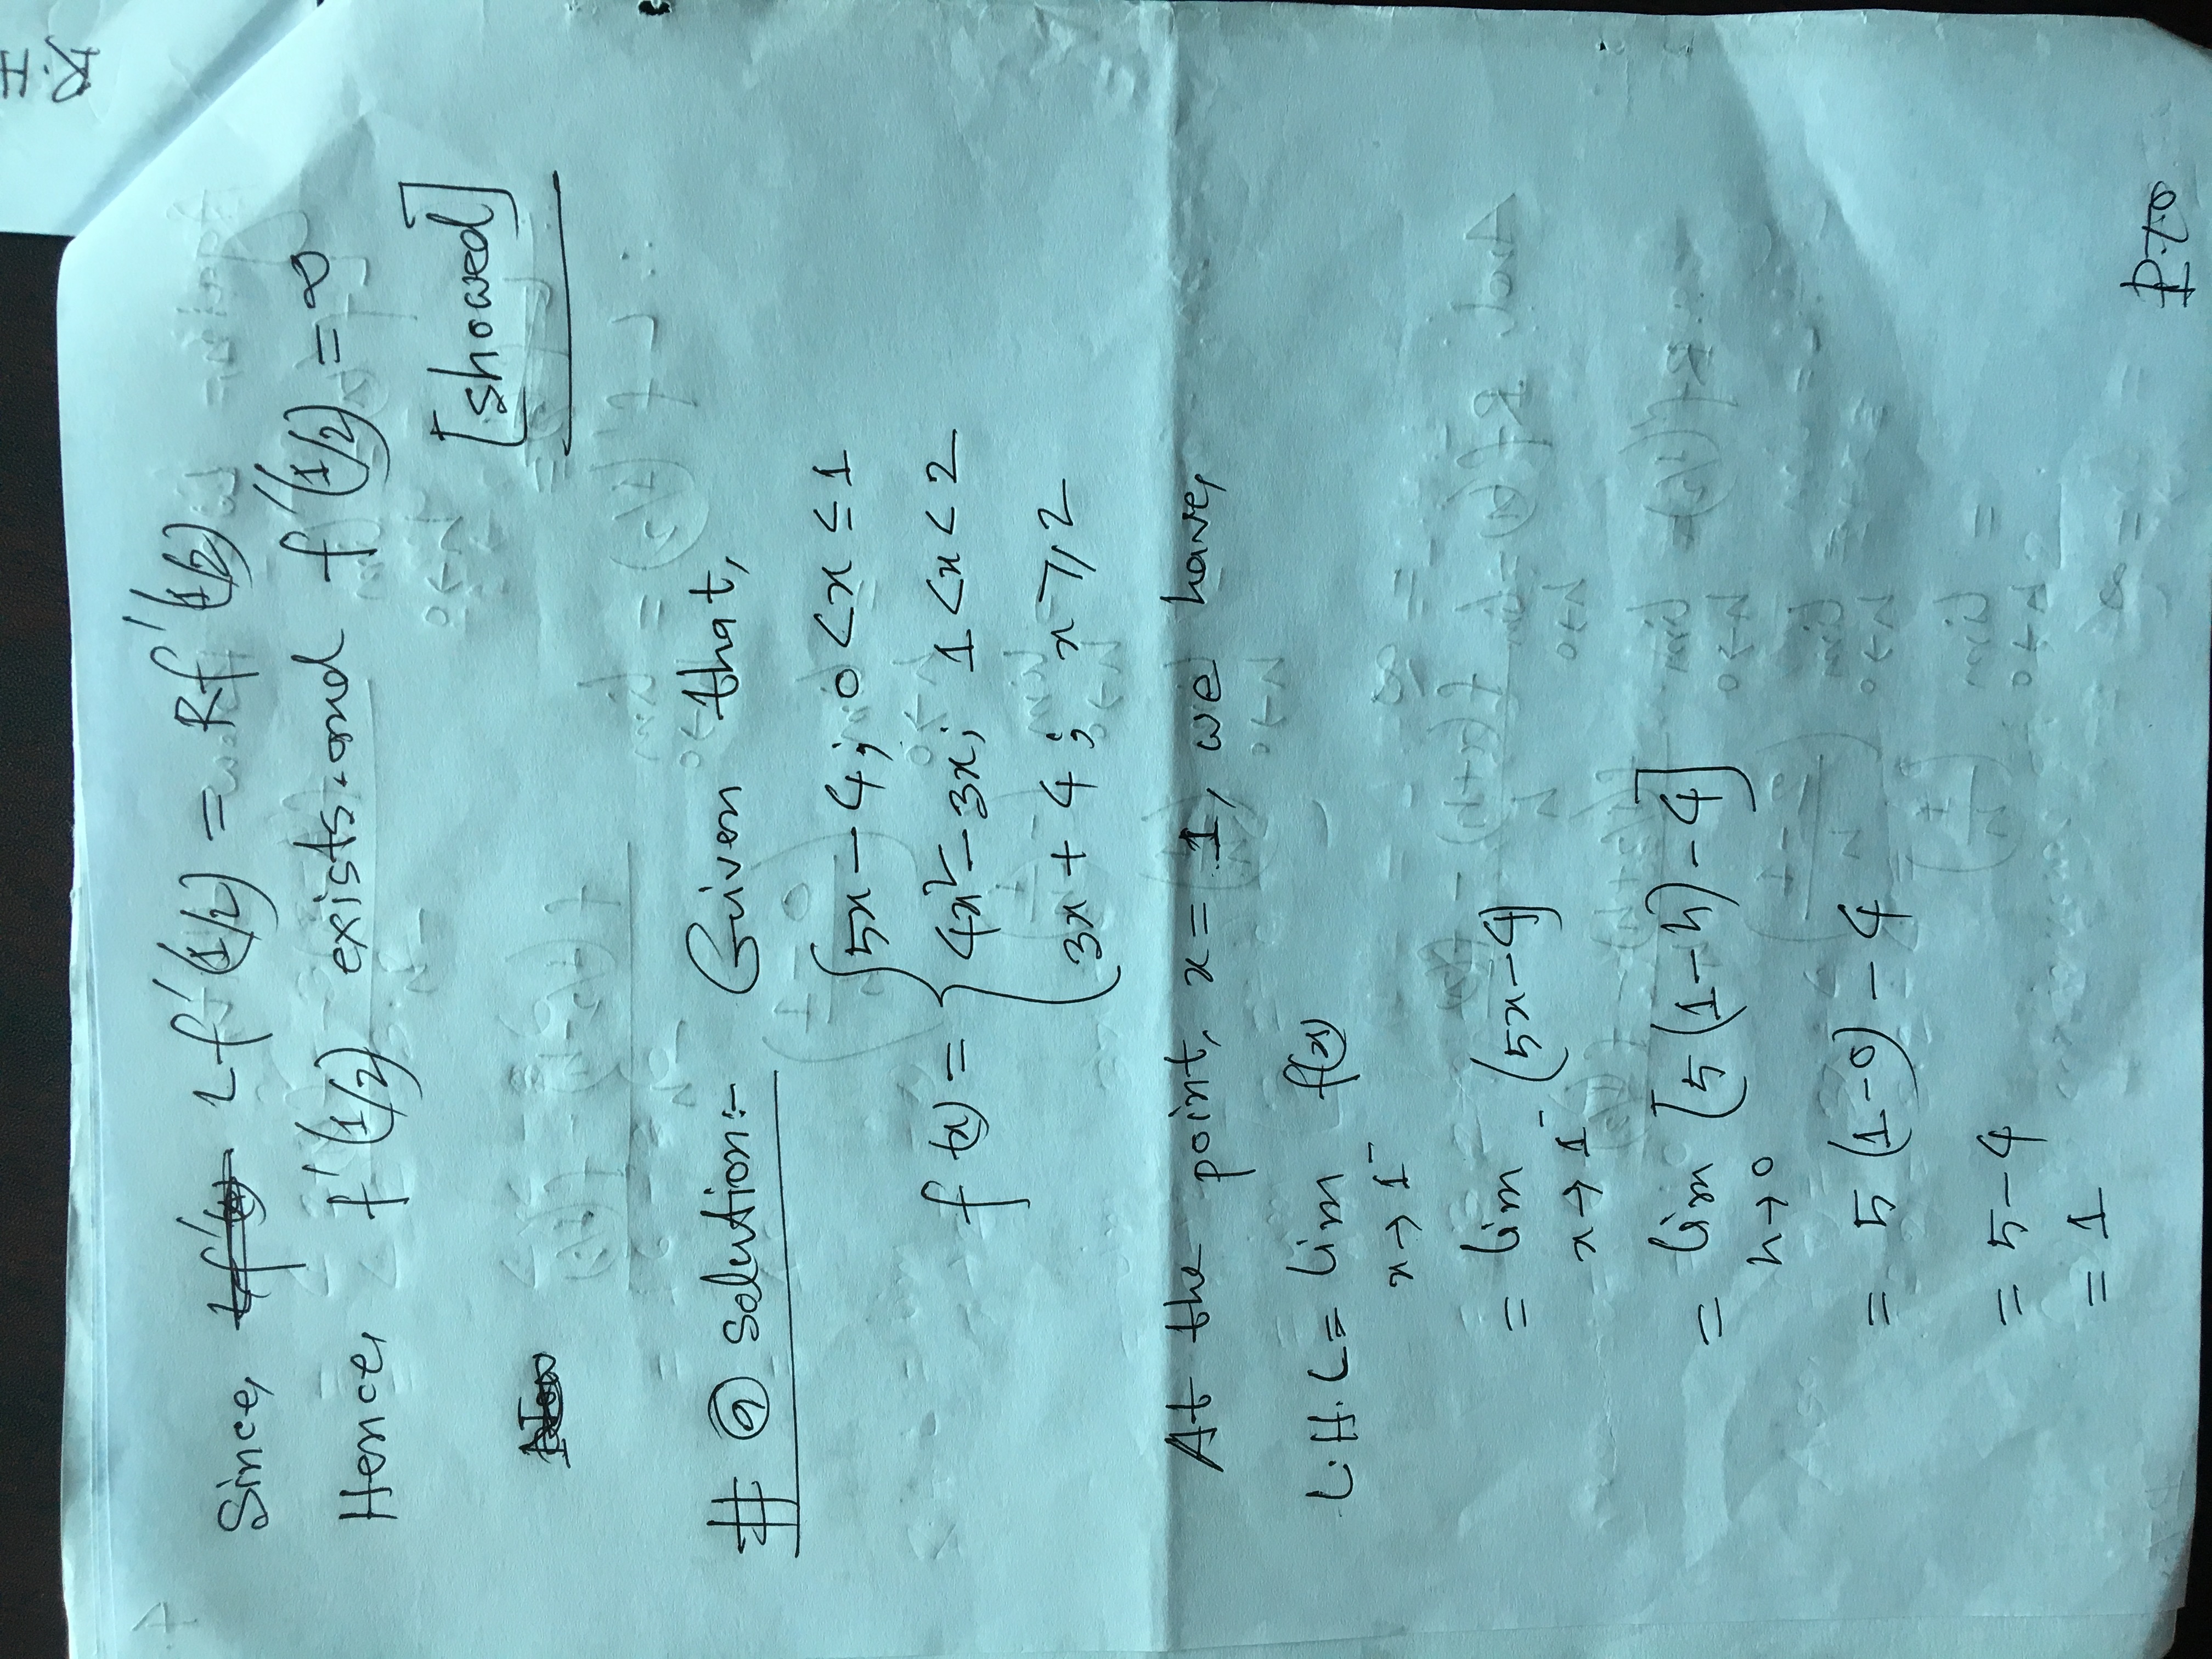 R.H
Since, Lf'(1/2) = Rf'(1/2)
Hence, f'(1/2) exists and f'(1/2) = ∞
[showed]
# ⑨ solution:- Given that,
f(x) = { 5x-4; 0<x≤1
4x²-3x; 1<x<2
3x+4; x≥2
At the point, x=1, we have,
L.H.L = lim f(x)
x→1⁻
= lim (5x-4)
x→1⁻
= lim [5(1-h)-4]
h→0
= 5(1-0)-4
= 5-4
= 1
P.T.O